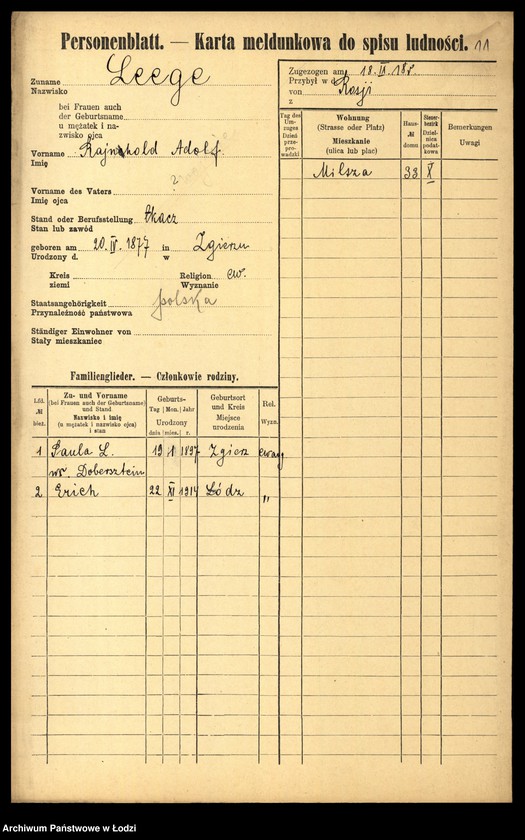 Personenblatt. — Karta meldunkowa do spisu ludności. 11
Zuname Leege
Nazwisko
bei Frauen auch
der Geburtsname
u mężatek i na-
zwisko ojca
Vorname Rajnhold Adolf
Imię
Vorname des Vaters ?
Imię ojca
Stand oder Berufsstellung tkacz
Stan lub zawód
geboren am 20. IV. 1877 in Zgierzu
Urodzony d. w
Kreis Religion ew.
ziemi Wyznanie
Staatsangehörigkeit polska
Przynależność państwowa
Ständiger Einwohner von
Stały mieszkaniec
Zugezogen am 18. 
Przybył w d.
von Rosji
z
Tag des Um-zuges
Dzień prze-pro-wadzki
Wohnung
(Strasse oder Platz)
Mieszkanie
(ulica lub plac)
Haus-
№
domu
Steuer-
bezirk
Dziel-
nica
podat-
kowa
Bemerkungen
Uwagi
Milsza 33 X
Familienglieder. — Członkowie rodziny.
Lfd.
№
bież.
Zu- und Vorname
(bei Frauen auch der Geburtsname)
und Stand
Nazwisko i imię
(u mężatek i nazwisko ojca)
i stan
Geburts-
Tag Mon. Jahr
Urodzony
dnia mies. r.
Geburtsort
und Kreis
Miejsce
urodzenia
Rel.
Wyzn.
1 Paula L. 19 1 1897 Zgierz ewang
ur. Dobersztein
2 Erich 22 XI 1914 Łódz "
Archiwum Państwowe w Łodzi